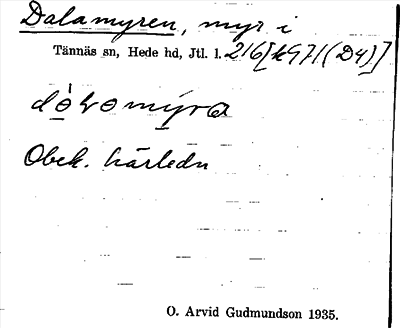 Dalamyren, myr i
Tännäs sn, Hede hd, Jtl. l. 216[k971(D4)]
Obek. härledn
O. Arvid Gudmundson 1935.